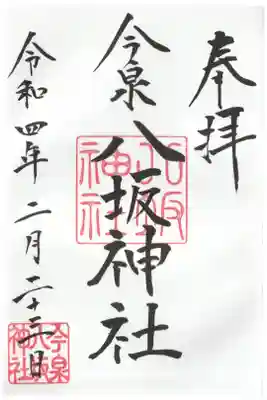 奉拝
今泉
八坂神社
八坂
神社
令和四年二月二十三日
今泉
八坂
神社